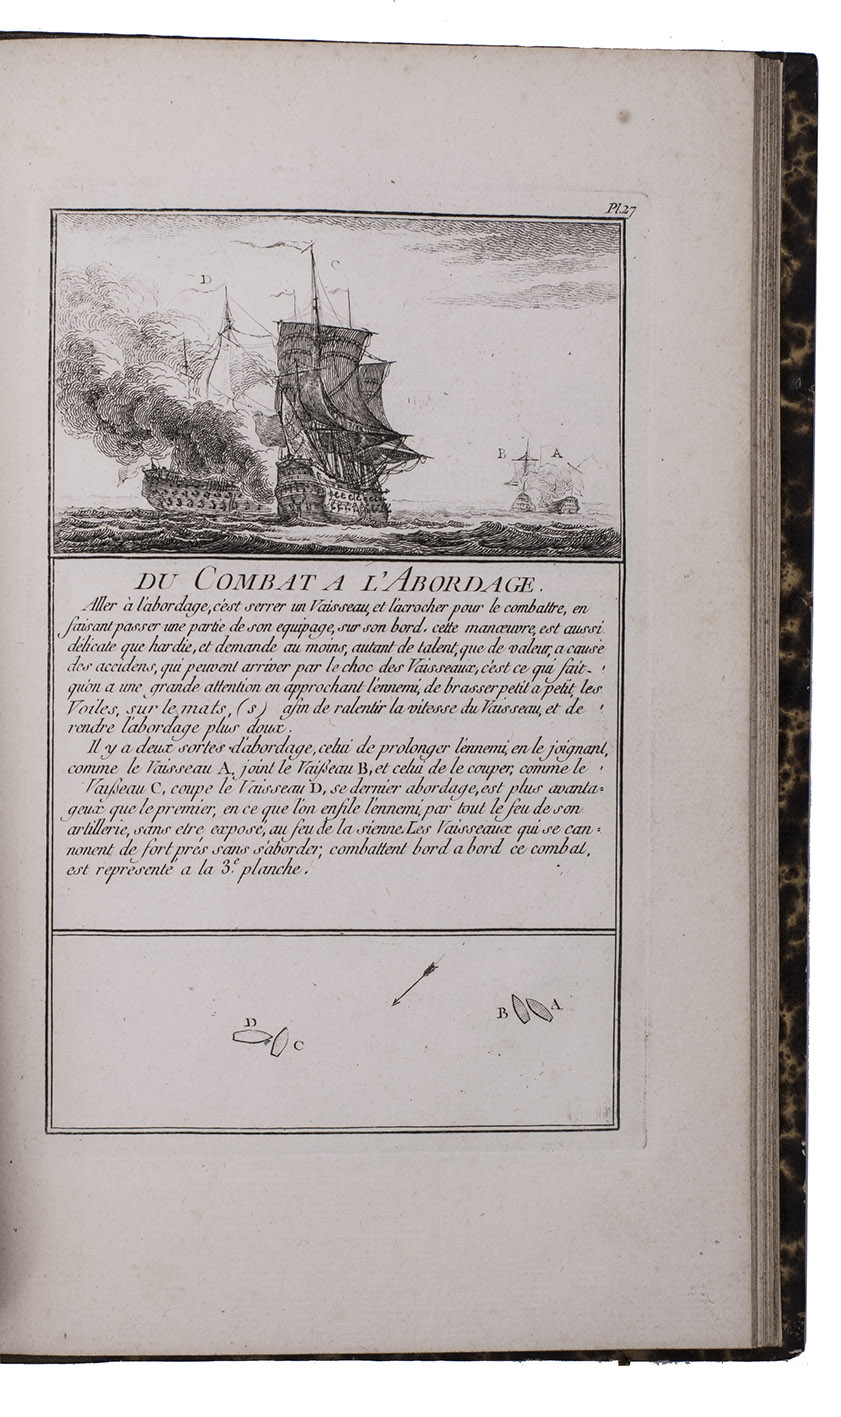 Pl.27
D
C
B
A
DU COMBAT A L'ABORDAGE.
Aller à l'abordage, c'est serrer un Vaisseau, et l'acrocher pour le combattre, en
faisant passer une partie de son equipage, sur son bord. cette manœuvre, est aussi
délicate que hardie, et demande au moins, autant de talent, que de valeur, a cause
des accidens, qui peuvent arriver par le choc des Vaisseaux, c'est ce qui fait-
qu'on a une grande attention en approchant l'ennemi, de brasser petit a petit, les
Voiles, sur le mats, (s) afin de ralentir la vitesse du Vaisseau, et de
rendre l'abordage plus doux.
Il y a deux sortes d'abordage, celui de prolonger l'ennemi, en le joignant,
comme le Vaisseau A, joint le Vaißeau B, et celui de le couper, comme le
Vaißeau C, coupe le Vaisseau D, se dernier abordage, est plus avanta=
geux que le premier, en ce que l'on enfile l'ennemi, par tout le feu de son
artillerie, sans etre exposé, au feu de la sienne. Les Vaisseaux qui se can=
nonent de fort prés sans s'aborder, combattent bord a bord ce combat,
est représenté a la 3.e planche.
D
C
B
A